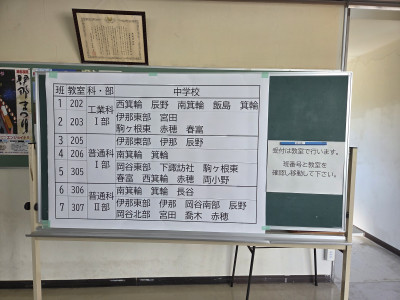 班 教室 科・部 中学校
1 202 工業科 Ⅰ部 西箕輪 辰野 南箕輪 飯島 箕輪
2 203 伊那東部 宮田
駒ヶ根東 赤穂 春富
3 205 普通科 Ⅰ部 伊那東部 伊那 辰野
4 206 南箕輪 箕輪
5 305 岡谷東部 下諏訪社 駒ヶ根東
春富 西箕輪 赤穂 両小野
6 306 普通科 Ⅱ部 南箕輪 箕輪 長谷
7 307 伊那東部 伊那 岡谷南部 辰野
岡谷北部 宮田 喬木 赤穂
受付は教室で行います。
班番号と教室を
確認し移動して下さい。
伊那まつり